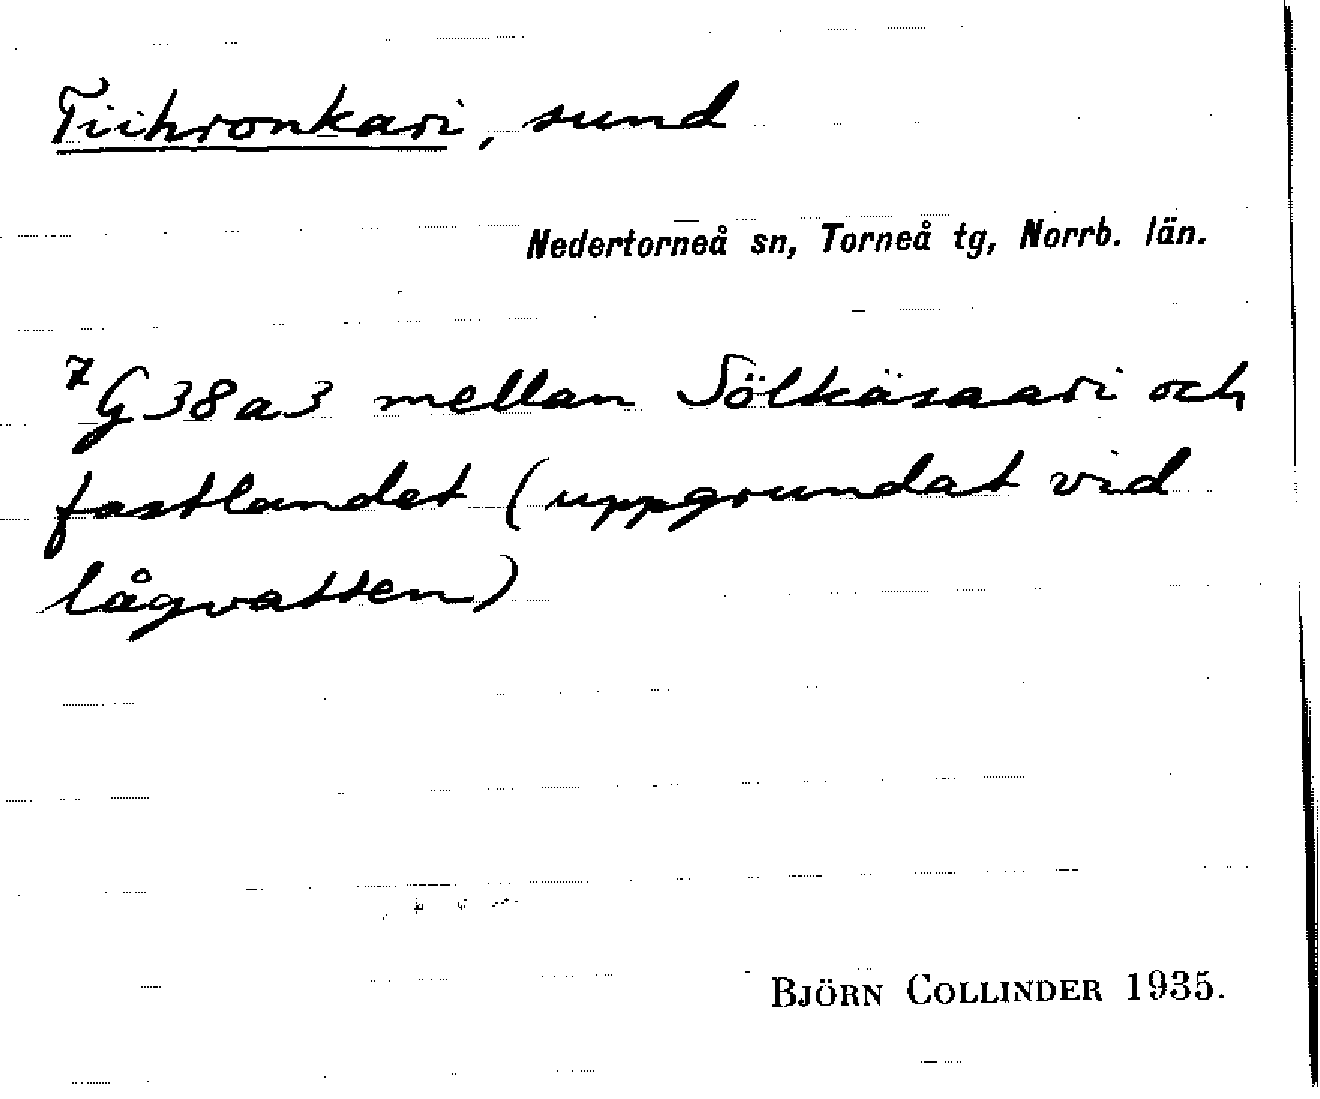 Tiihronkari, sund
Nedertorneå sn, Torneå tg, Norrb. län.
7 G38a3 mellan Sölkäsaari och
fastlandet (uppgrundat vid
lågvatten)
BJÖRN COLLINDER 1935.